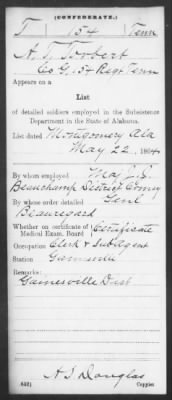 (CONFEDERATE.)
T 154 Tenn
A. T. Torbert
Co G, 154 Regt Tenn
Appears on a
List
of detailed soldiers employed in the Subsistence
Department in the State of Alabama.
List dated Montgomery Ala
May 22, 1864
By whom employed Maj J. J.
Beauchamp District Comsy
By whose order detailed Genl
Beauregard
Whether on certificate of Medical Exam. Board Certificate
Occupation Clerk & Subagent
Station
Remarks:
Gainesville Dist
A. S. Douglas
Copyist.